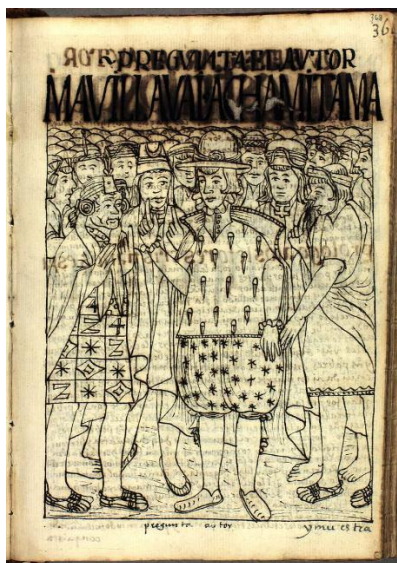 368
PREGVMTA EL AVTOR
MA VILLAVAI ACHAMITAMA
pregunta autor y muestra